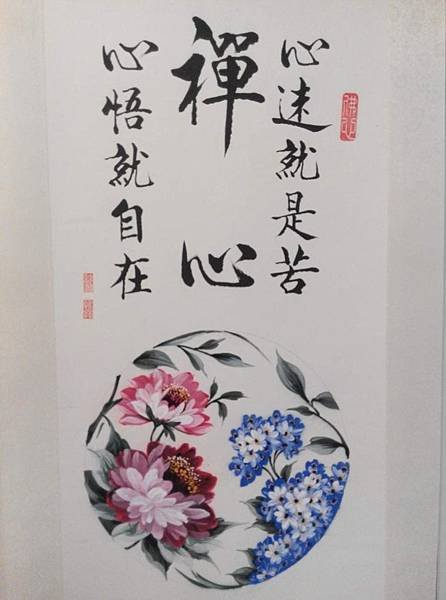 心迷就是苦
禪心
心悟就自在